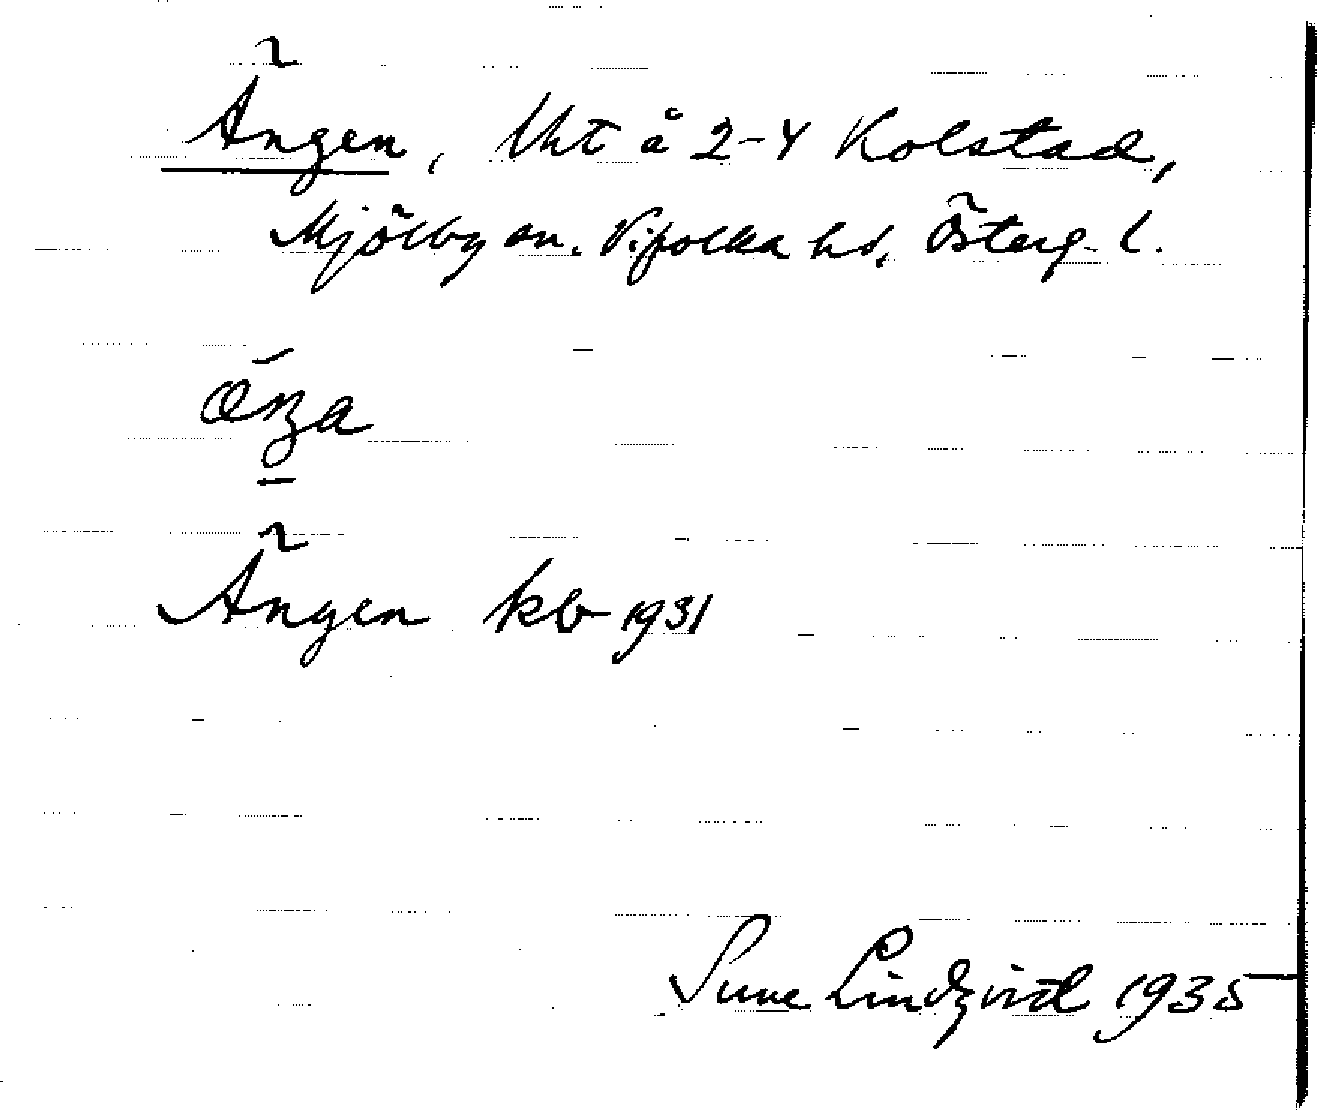 Ängen, Uht å 2-4 Kolstad,
Mjölby sn. Vifolka hd, Österg. l.
Ängen kb 1931
Sune Lindqvist 1935